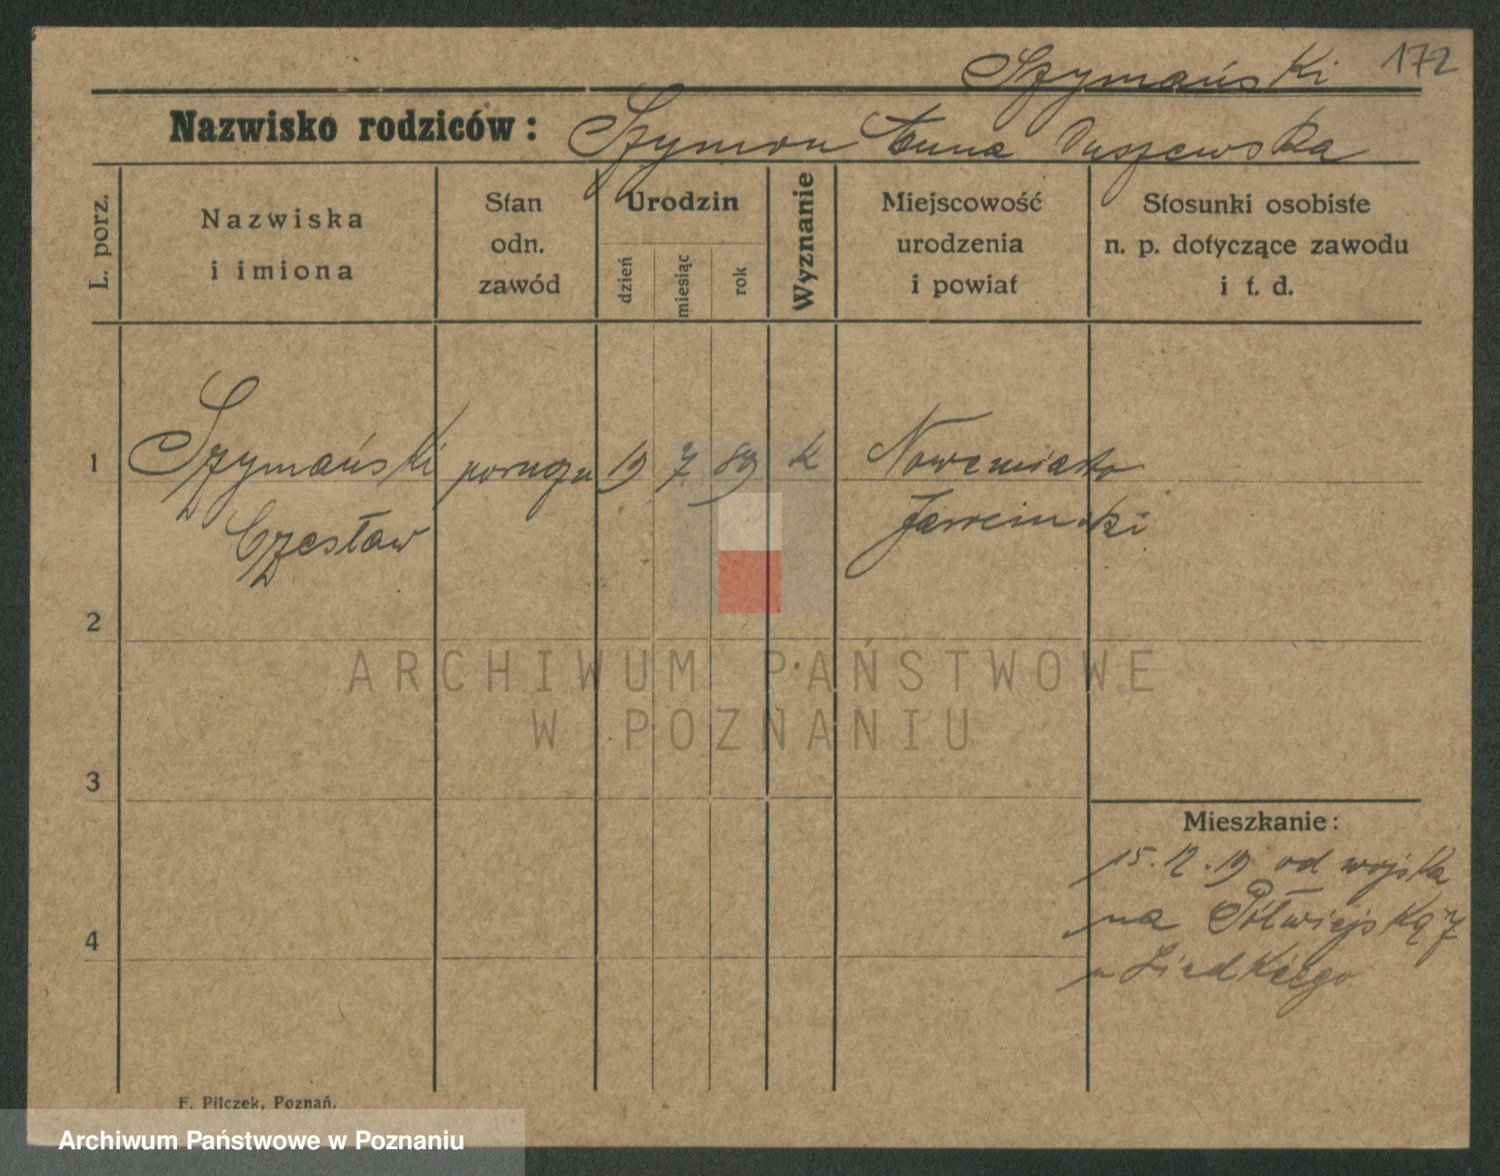 Szymański 172
Nazwisko rodziców: Szymon Anna Duszewska
L. porz.
Nazwiska
i imiona
Stan
odn.
zawód
Urodzin
dzień
miesiąc
rok
Wyznanie
Miejscowość
urodzenia
i powiat
Stosunki osobiste
n. p. dotyczące zawodu
i t. d.
1 Szymański 19 7 89 k Nowemiasto
Czesław
2
ARCHIWUM PAŃSTWOWE
W POZNANIU
3
Mieszkanie:
15.12.19 od wojska
na Półwiejską 7
4
u
F. Pilczek, Poznań.
Archiwum Państwowe w Poznaniu